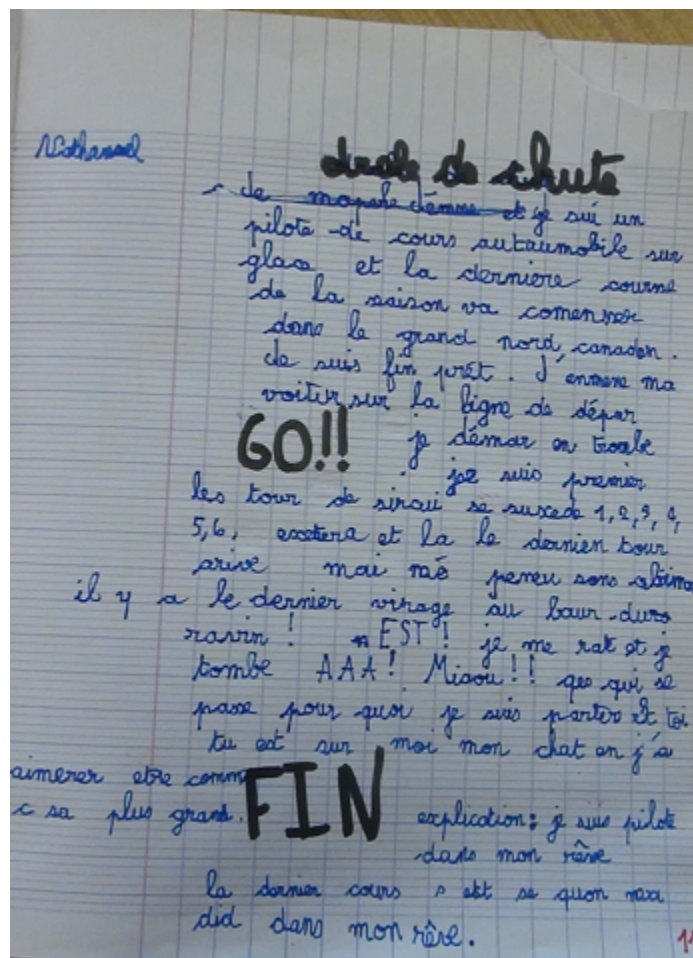 Nathanael
drole de chute
Je mapele démme et je sui un
pilote de cours autaumobile sur
glace et la derniere course
de la saison va comenser
dans le grand nord canadien.
Je suis fin prét. J'enmene ma
voitur sur la ligne de départ
GO!! je démar en trombe
je suis premier
les tour de sircui se suxede 1,2,3,4,
5,6, excetera et la le dernien tour
arive mai més peneu sons abima
il y a le dernier virage au baur duro
ravin! EST! je me rat et je
tombe AAA! Miaou!! qes qui se
passe pour quoi je suis parter et toi
tu est sur moi mon chat en j'é
aimerer etre comme
c sa plus grand. FIN explication: je suis pilote
dans mon rêve
la dernier cours s est se quon ma
did dans mon rêve.